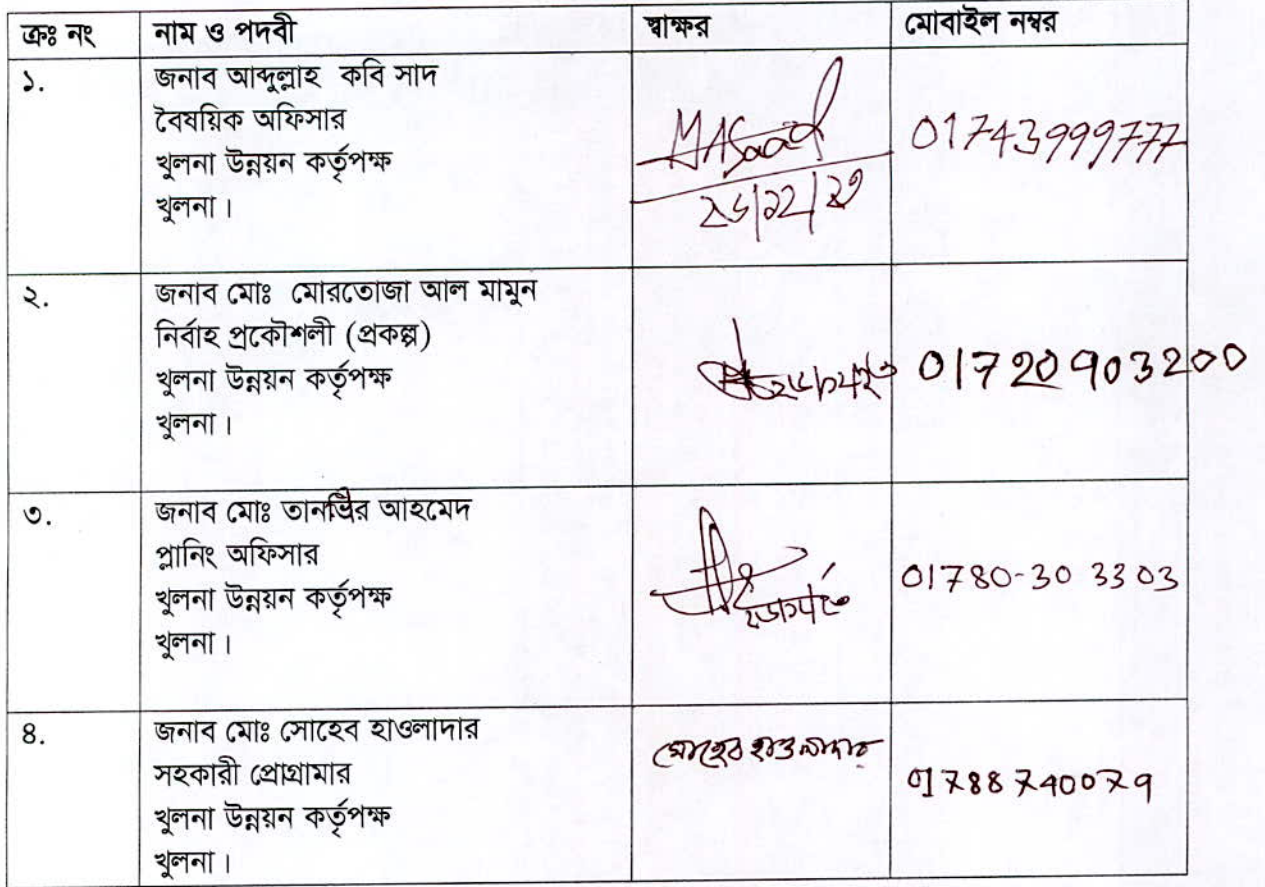 ক্রঃ নং নাম ও পদবী স্বাক্ষর মোবাইল নম্বর
১. জনাব আব্দুল্লাহ কবি সাদ
বৈষয়িক অফিসার
খুলনা উন্নয়ন কর্তৃপক্ষ
খুলনা।
MASaad
01743999777
২. জনাব মোঃ মোরতোজা আল মামুন
নির্বাহ প্রকৌশলী (প্রকল্প)
খুলনা উন্নয়ন কর্তৃপক্ষ
খুলনা।
01720903200
৩. জনাব মোঃ তানভির আহমেদ
প্লানিং অফিসার
খুলনা উন্নয়ন কর্তৃপক্ষ
খুলনা।
01780-303303
৪. জনাব মোঃ সোহেব হাওলাদার
সহকারী প্রোগ্রামার
খুলনা উন্নয়ন কর্তৃপক্ষ
খুলনা।
সোহেব হাওলাদার
01788740079